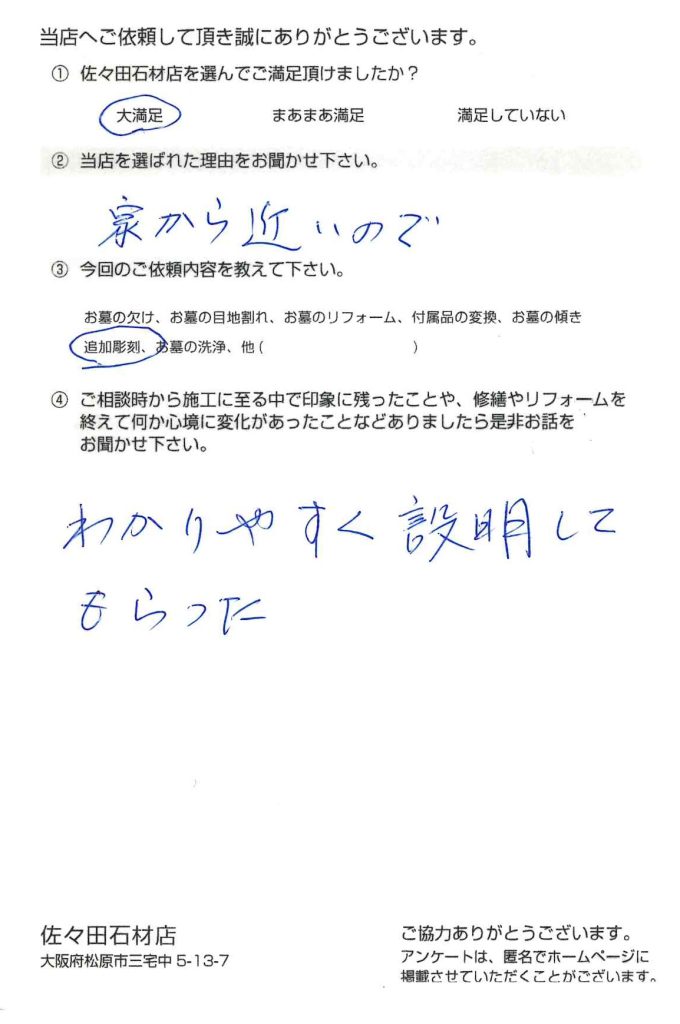 当店へご依頼して頂き誠にありがとうございます。
① 佐々田石材店を選んでご満足頂けましたか？
大満足 まあまあ満足 満足していない
② 当店を選ばれた理由をお聞かせ下さい。
家から近いので
③ 今回のご依頼内容を教えて下さい。
お墓の欠け、お墓の目地割れ、お墓のリフォーム、付属品の変換、お墓の傾き
追加彫刻、お墓の洗浄、他 ( )
④ ご相談時から施工に至る中で印象に残ったことや、修繕やリフォームを
終えて何か心境に変化があったことなどありましたら是非お話を
お聞かせ下さい。
わかりやすく説明して
もらった
佐々田石材店
大阪府松原市三宅中 5-13-7
ご協力ありがとうございます。
アンケートは、匿名でホームページに
掲載させていただくことがございます。